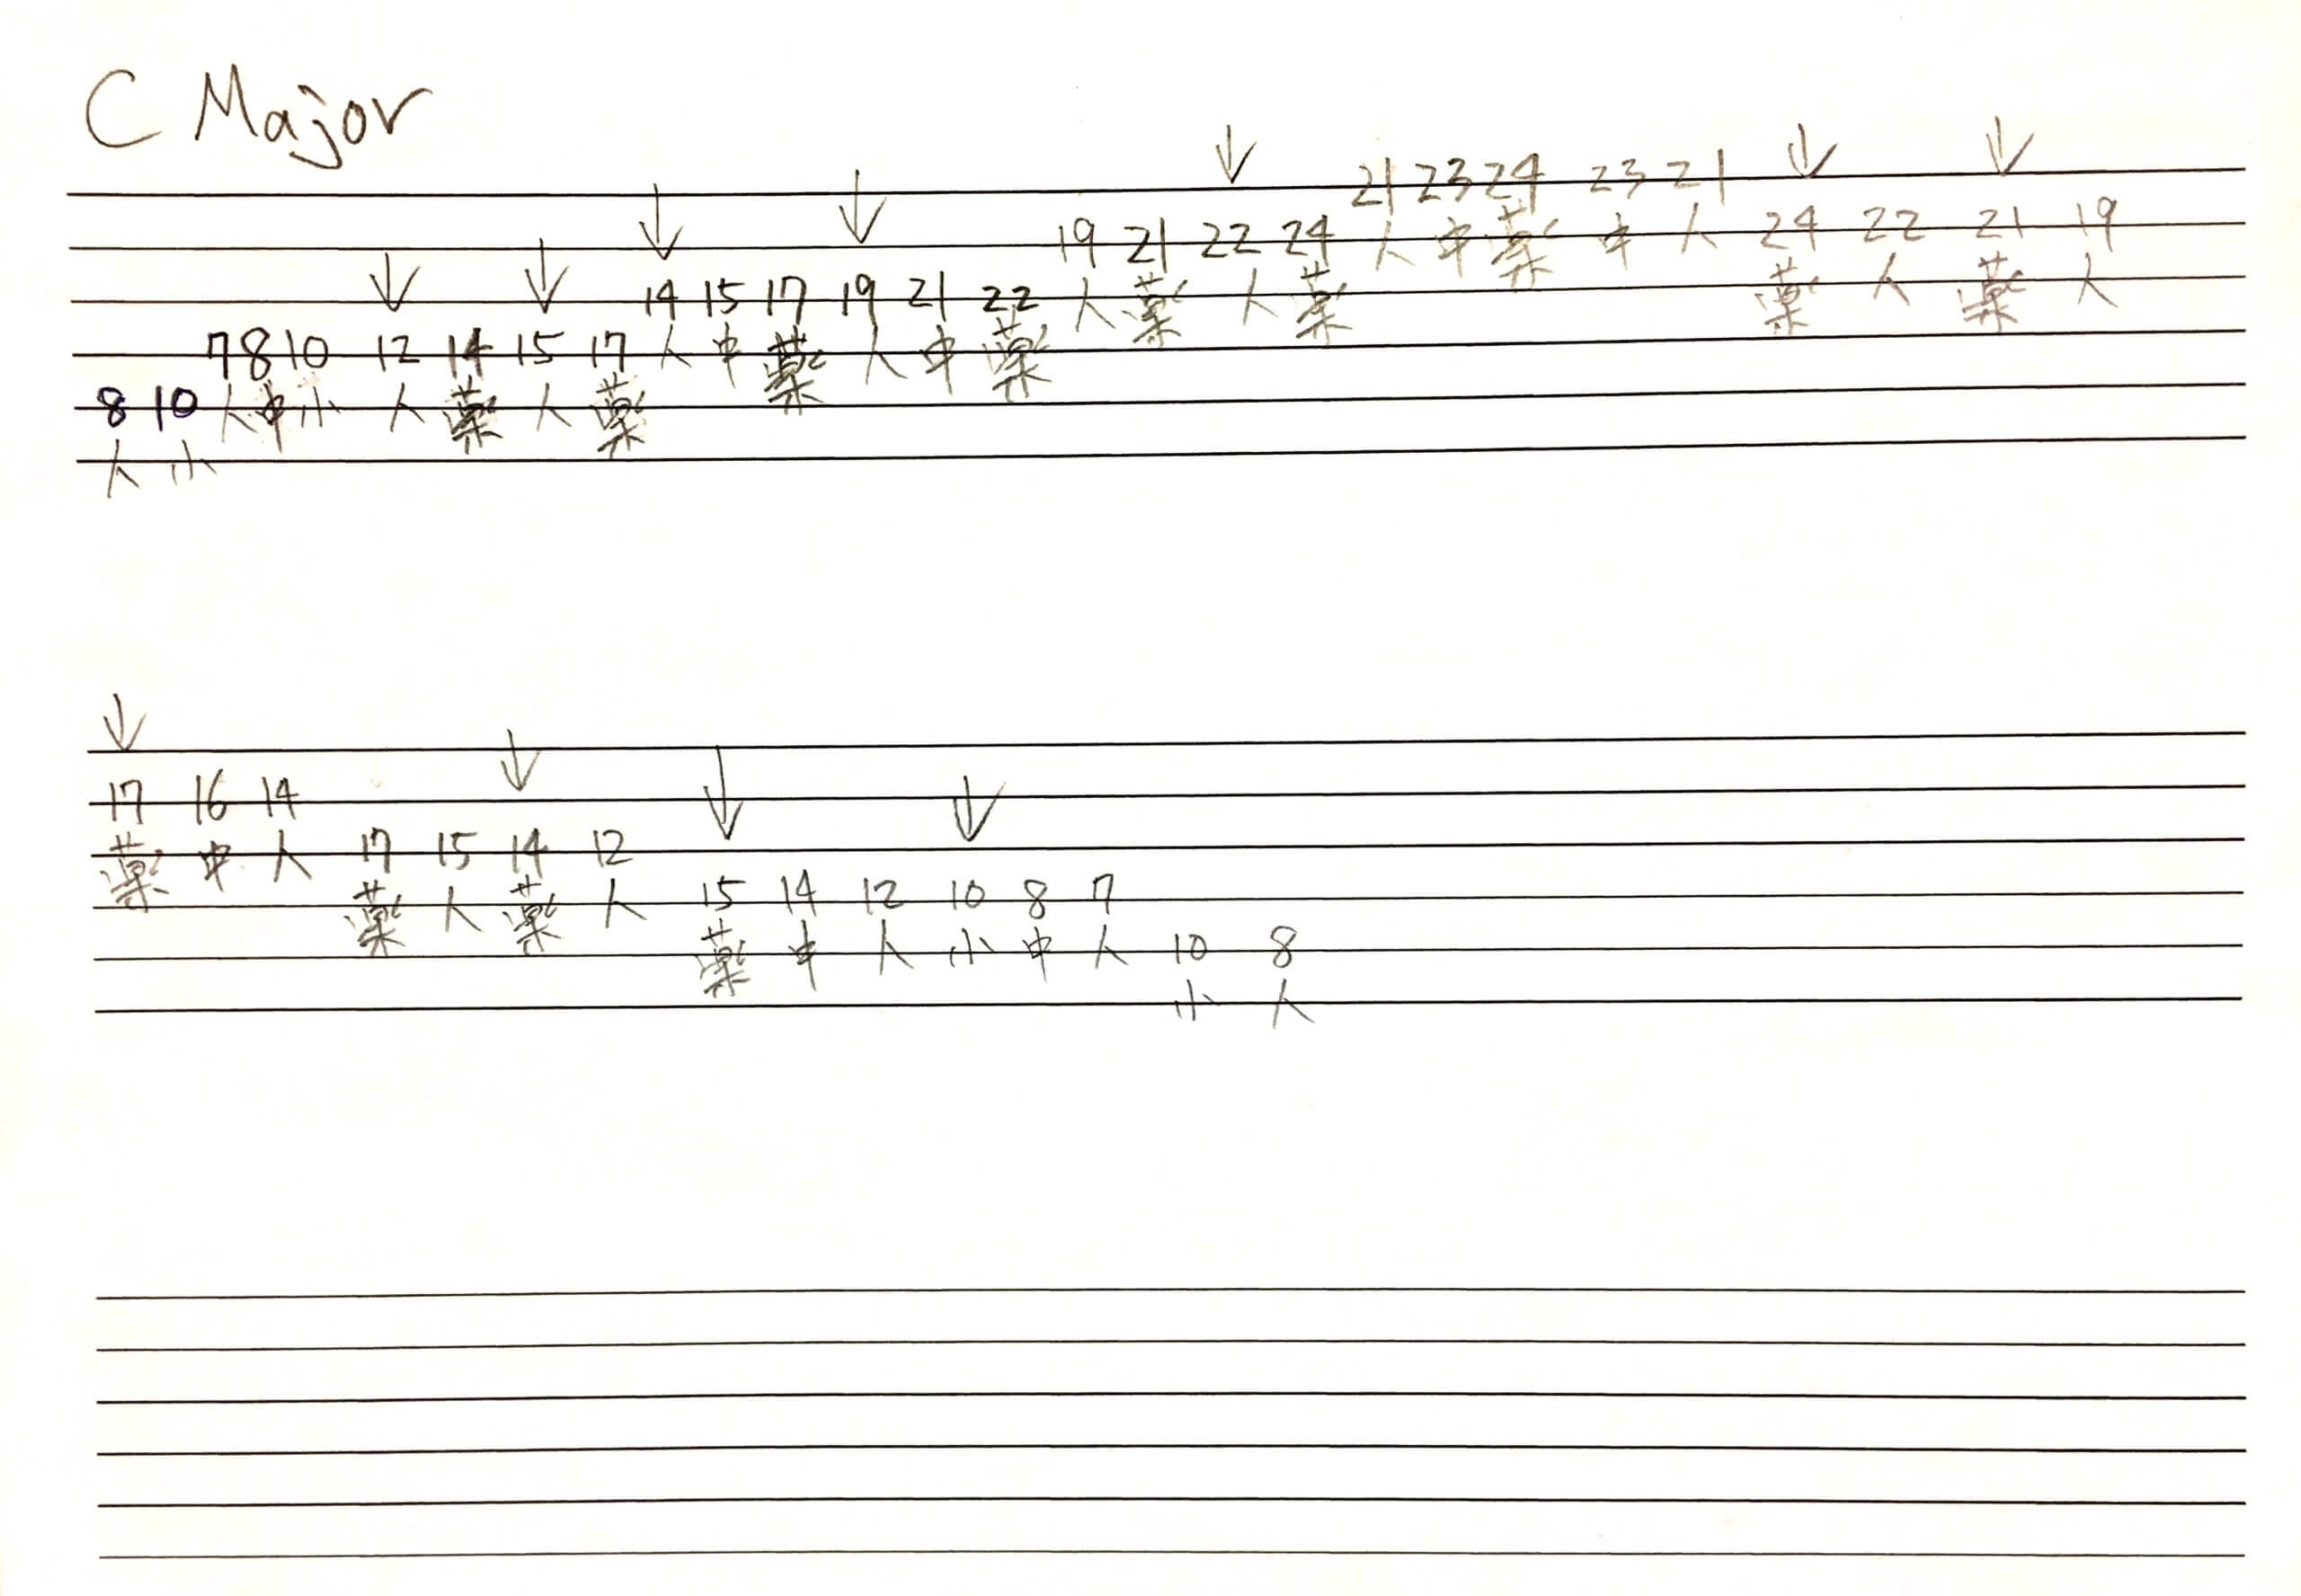 C Major
8 10
人 小
7 8 10 12 14 15 17
人 中 小 人 薬 人 薬
14 15 17 19 21 22
人 中 薬 人 中 薬
19 21 22 24
人 薬 人 薬
21 23 24 23 21
人 中 薬 中 人
24 22 21 19
薬 人 薬 人
17 16 14
薬 中 人
17 15 14 12
薬 人 薬 人
15 14 12 10 8 7
薬 中 人 小 中 人
10 8
小 人